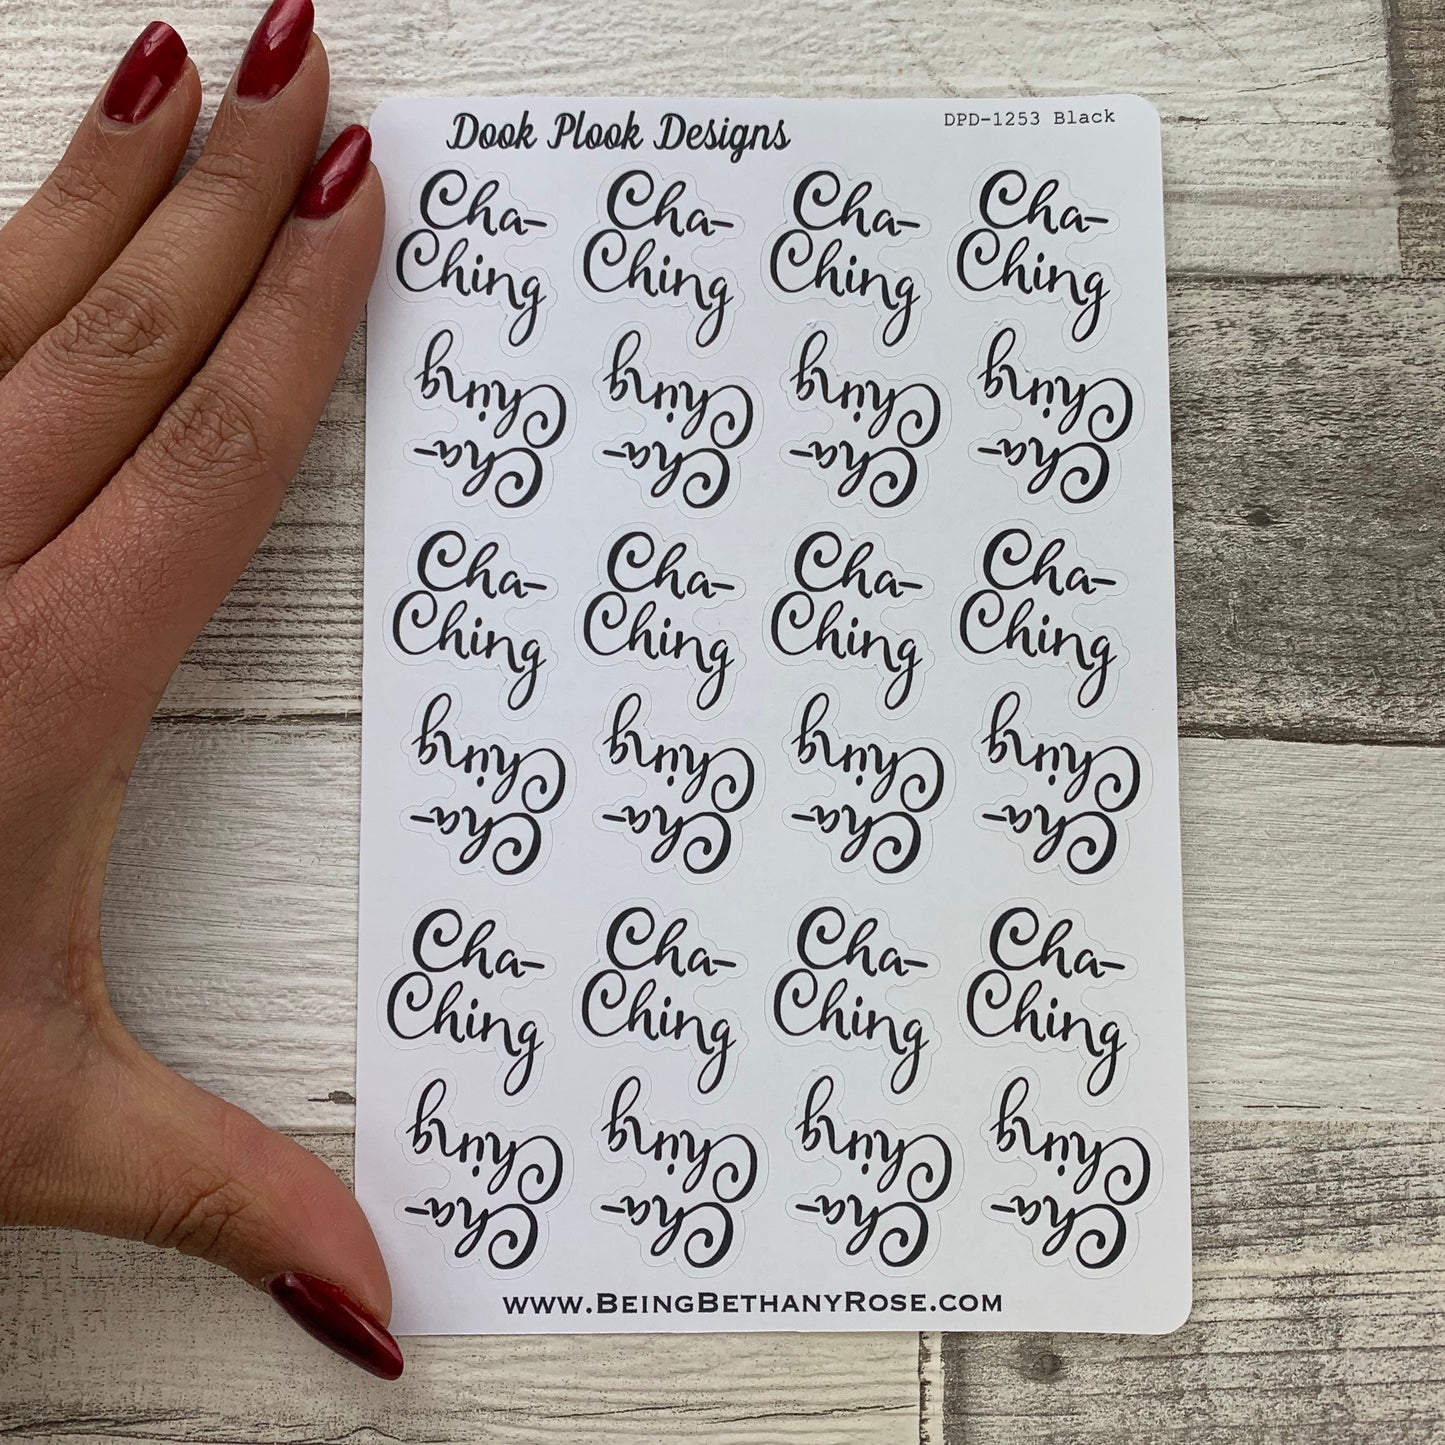 Dook Plook Designs
DPD-1253 Black
Cha- Cha- Cha- Cha-
Ching Ching Ching Ching
Cha- Cha- Cha- Cha-
Ching Ching Ching Ching
Cha- Cha- Cha- Cha-
Ching Ching Ching Ching
Cha- Cha- Cha- Cha-
Ching Ching Ching Ching
Cha- Cha- Cha- Cha-
Ching Ching Ching Ching
Cha- Cha- Cha- Cha-
Ching Ching Ching Ching
www.BeingBethanyRose.com